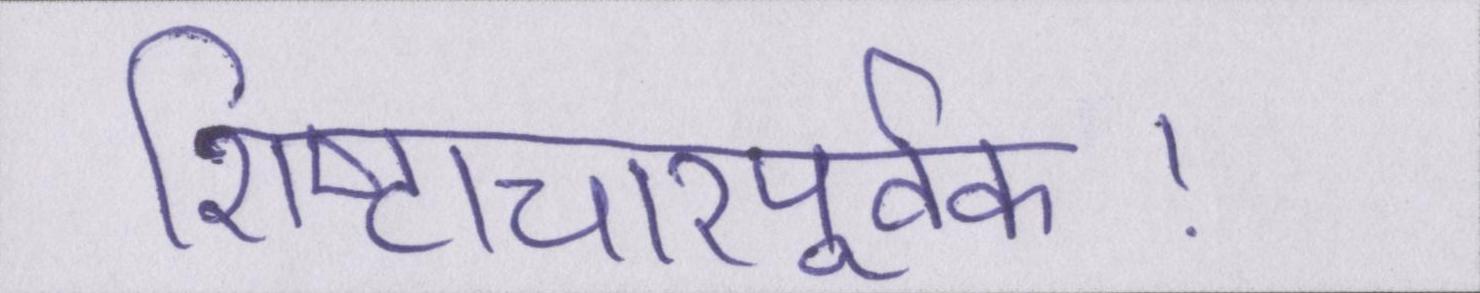 शिष्टाचारपूर्वक !